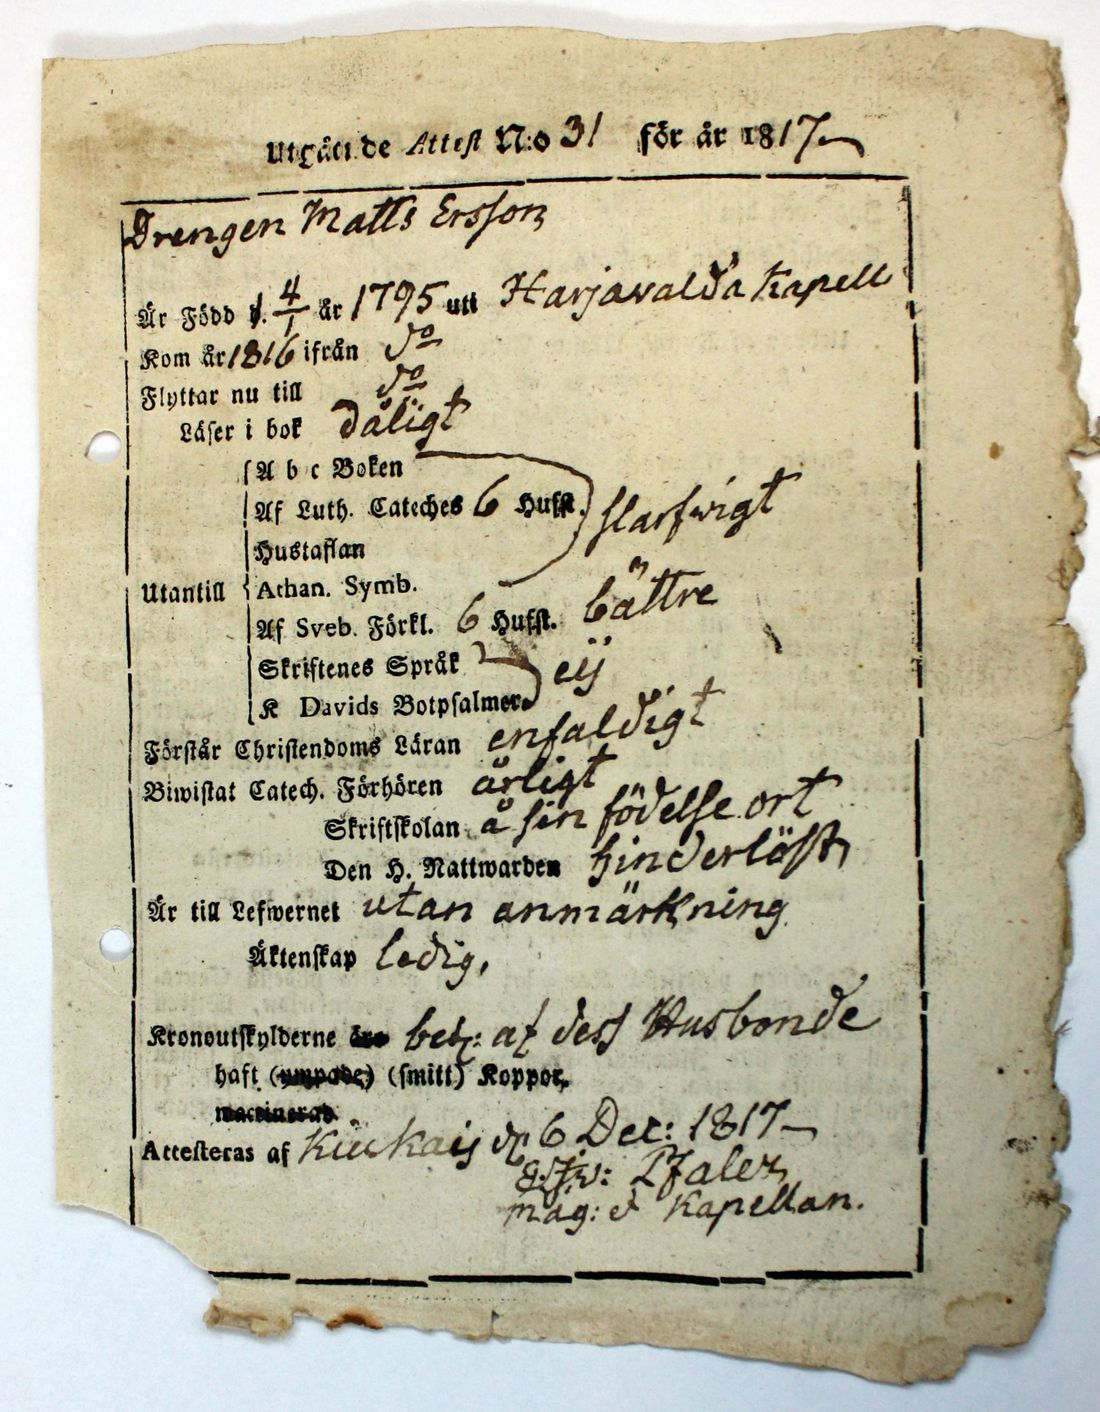 Utgående Attest N:o 31 för år 1817
Drengen Matts Ersson
Är Född d. 4/1 år 1795 uti Harjavalda Kapell
Kom år 1816 ifrån do
Flyttar nu till do
Läser i bok dåligt
A b c Boken
Af Luth. Cateches 6 Hufst. slarfwigt
Hustaflan
Utantill Athan. Symb.
Af Sveb. Förkl. 6 Hufst. bättre
Skriftenes Språk eij
K Davids Botpsalmer
Förstår Christendoms Läran enfaldigt
Biwistat Catech. Förhören årligt
Skriftskolan å sin födelse ort
Den H. Nattwarden hinderlöst
Är till Lefwernet utan anmärkning
Äktenskap ledig,
Kronoutskylderne äro bet: af dess Husbonde
haft (ympade) (smitt) Koppor,
waccinerad
Attesteras af Kiukais d. 6 Dec: 1817
Pfaler
mag: et Kapellan.